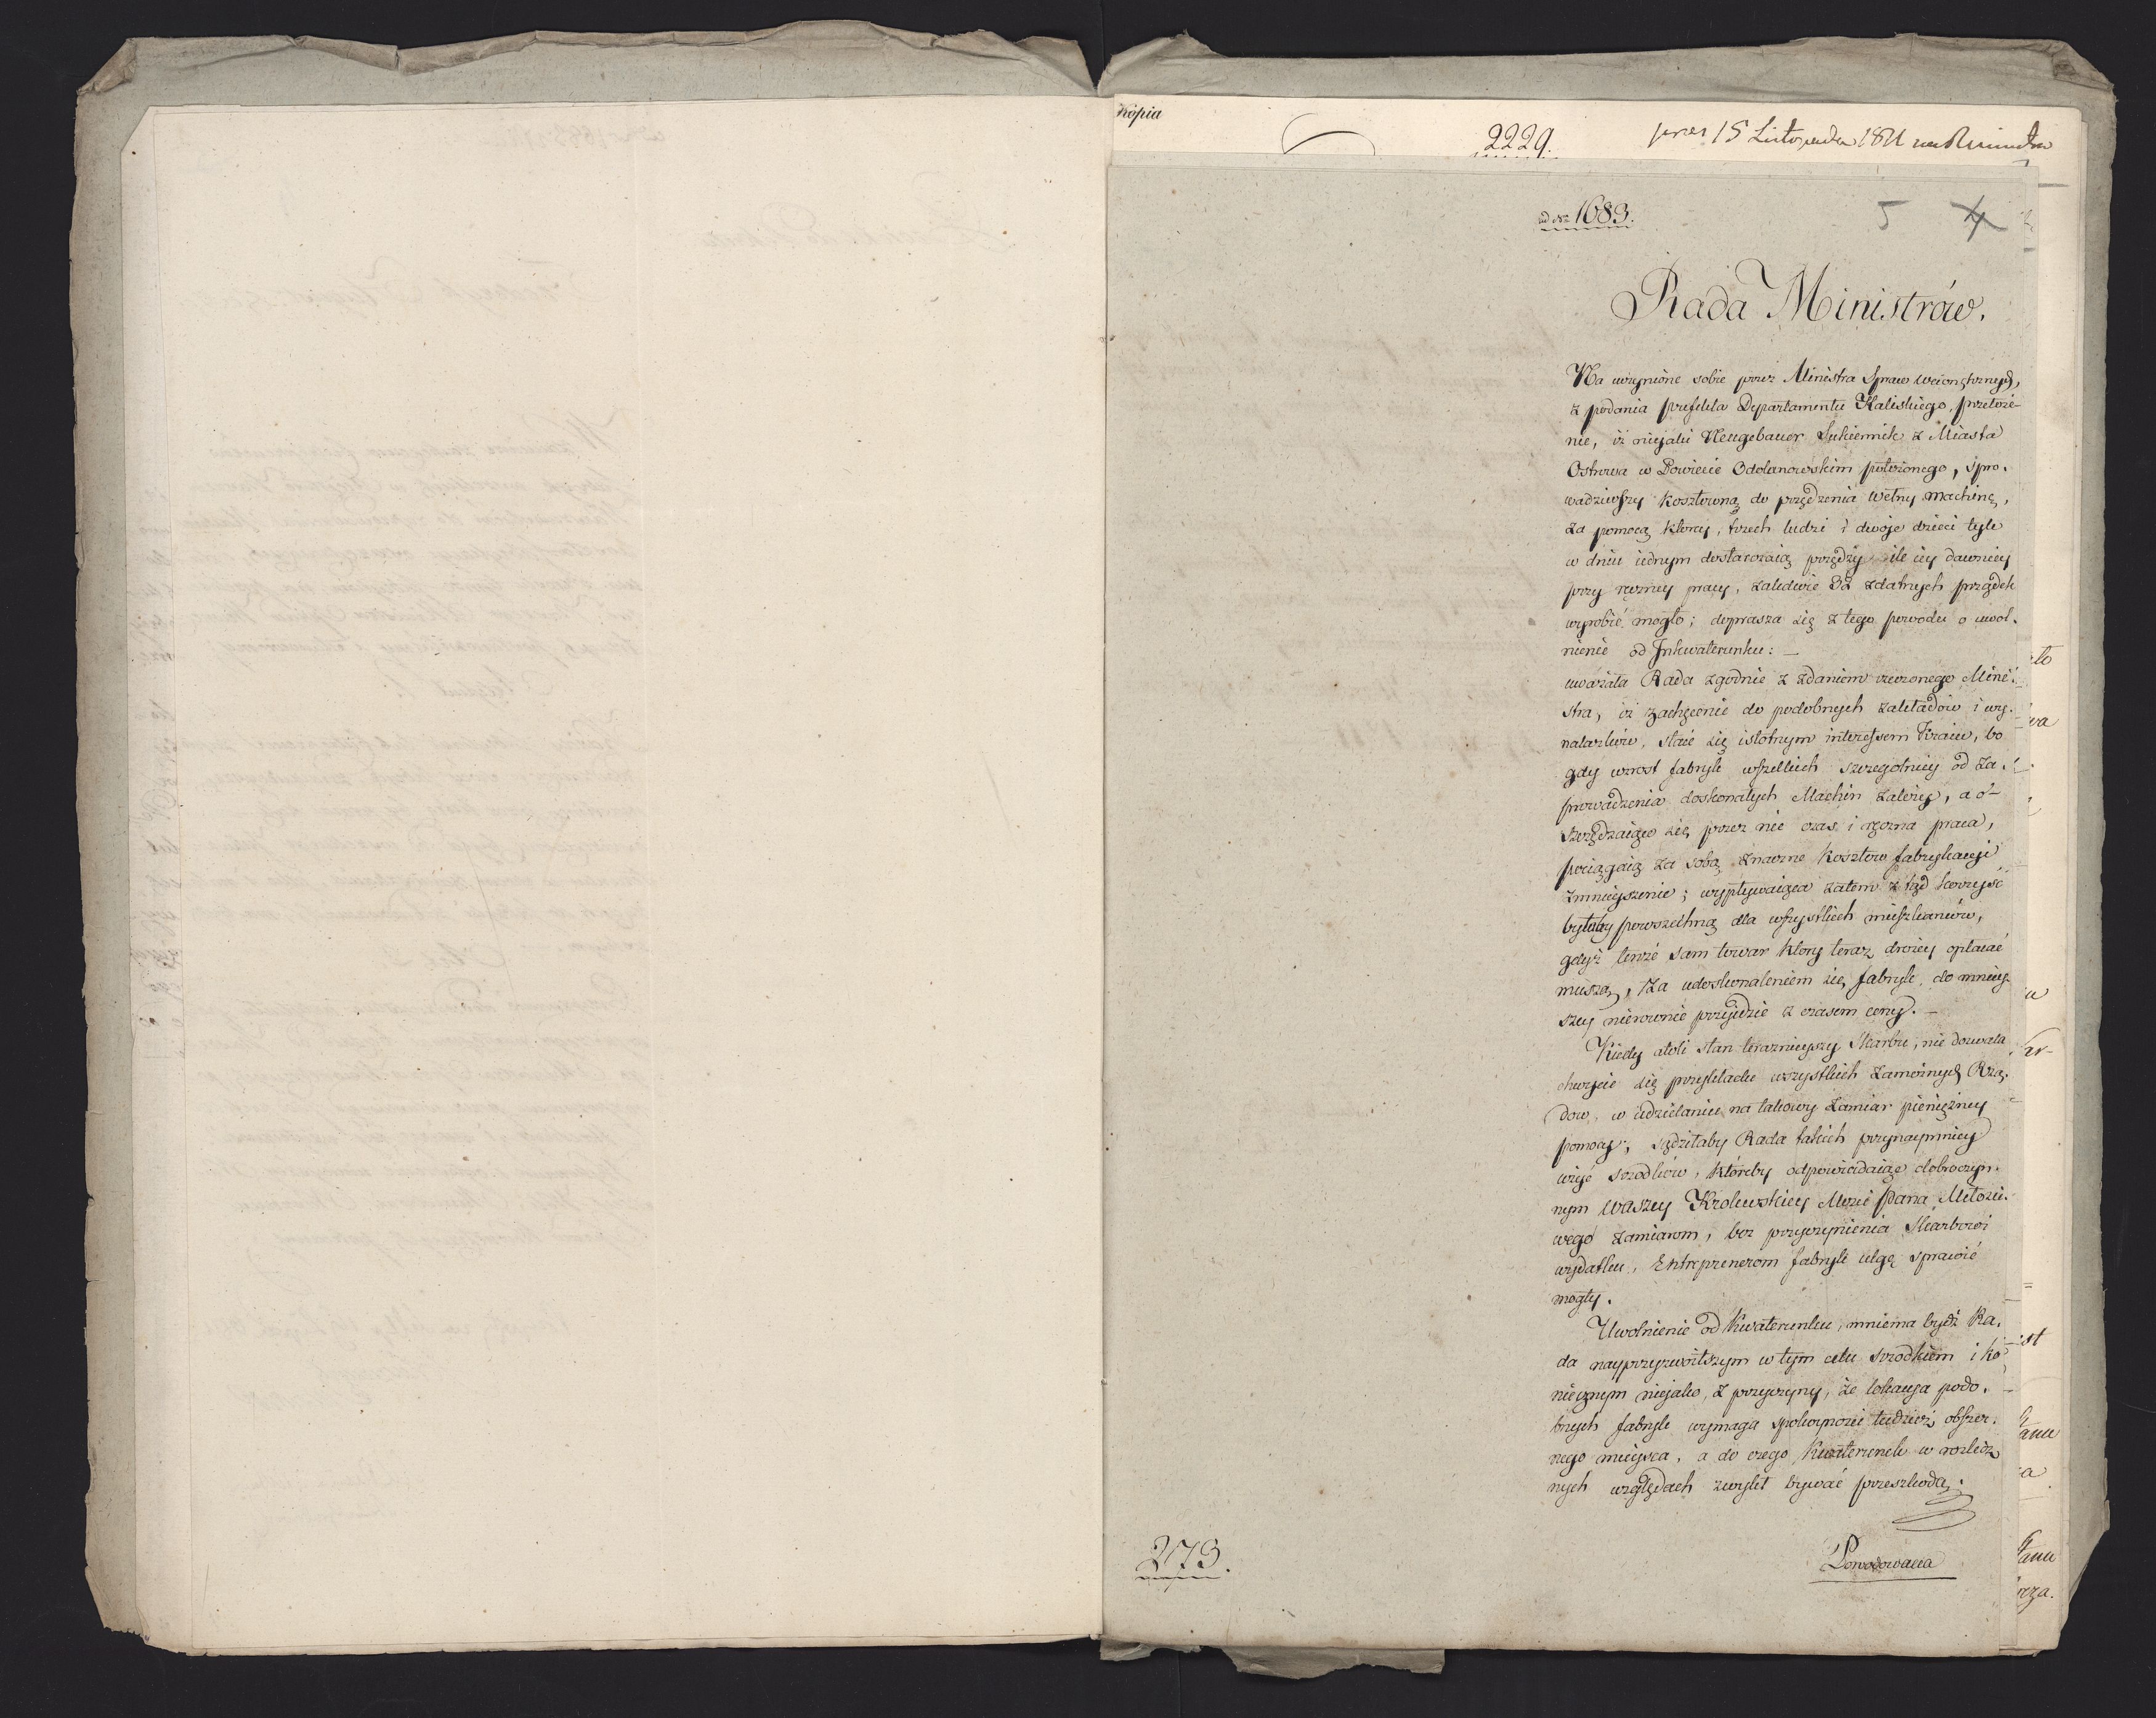 Kopia
2229.
15 Listopada 1811
ad Nr 1683.
5 4
Rada Ministrów.
Na uczynione sobie przez Ministra Spraw Wewnętrznych,
z podania prefekta Departamentu Kaliskiego, przełoże-
nie, iż niejaki Neugebauer Sukiennik z Miasta
Ostrowa w Powiecie Odolanowskim położonego, spro-
wadziwszy kosztowną do przędzenia wełny machinę,
za pomocą ktorey, trzech ludzi i dwoje dzieci tyle
w dniu iednym dostarczaią przędzy ile iey dawniey
przy ręczney pracy, zaledwie 32 zdatnych prządek
wyrobić mogło; doprasza się z tego powodu o uwol-
nienie od Inkwaterunku: —
uważała Rada zgodnie z zdaniem rzeczonego Mini-
stra, iż zachęcenie do podobnych zakładów i wy-
nalazków, staie się istotnym interessem Kraiu, bo
gdy wzrost fabryk wszelkich szczegolniey od za-
prowadzenia doskonałych Machin zależy, a o-
szczędzaiąc się przez nie czas i ręczna praca,
pociągaią za sobą znaczne kosztow fabrykacyi
zmnieyszenie; wypływaiąca zatem z tąd korzyść
byłaby powszechną dla wszystkich mieszkańców,
gdyż tenże sam towar ktory teraz drożey opłacać
muszą, za udoskonaleniem się fabryk, do mniey-
szey nierownie przyidzie z czasem ceny. —
Kiedy atoli stan teraznieyszy Skarbu, nie dozwala
chwycić się przykładu wszystkich zamożnych Rzą-
dow, w udzielaniu na takowy zamiar pieniężney
pomocy; sądziłaby Rada takich przynaymniey
użyć srzodków, któreby odpowiadaiąc dobroczyn-
nym Waszey Krolewskiey Mości Pana Miłości-
wego zamiarom, bez przyczynienia Skarbowi
wydatku, Entreprenerom fabryk ulgę sprawić
mogły.
Uwolnienie od Kwaterunku, mniema bydź Ra-
da nayprzyzwoitszym w tym celu srzodkiem i ko-
niecznym niejako, z przyczyny, że lokacya podo-
bnych fabryk wymaga spokoyności tudzież obszer-
nego mieysca, a do czego Kwaterunek w rozlicz-
nych względach zwykł bywać przeszkodą.
Powodowana
273.